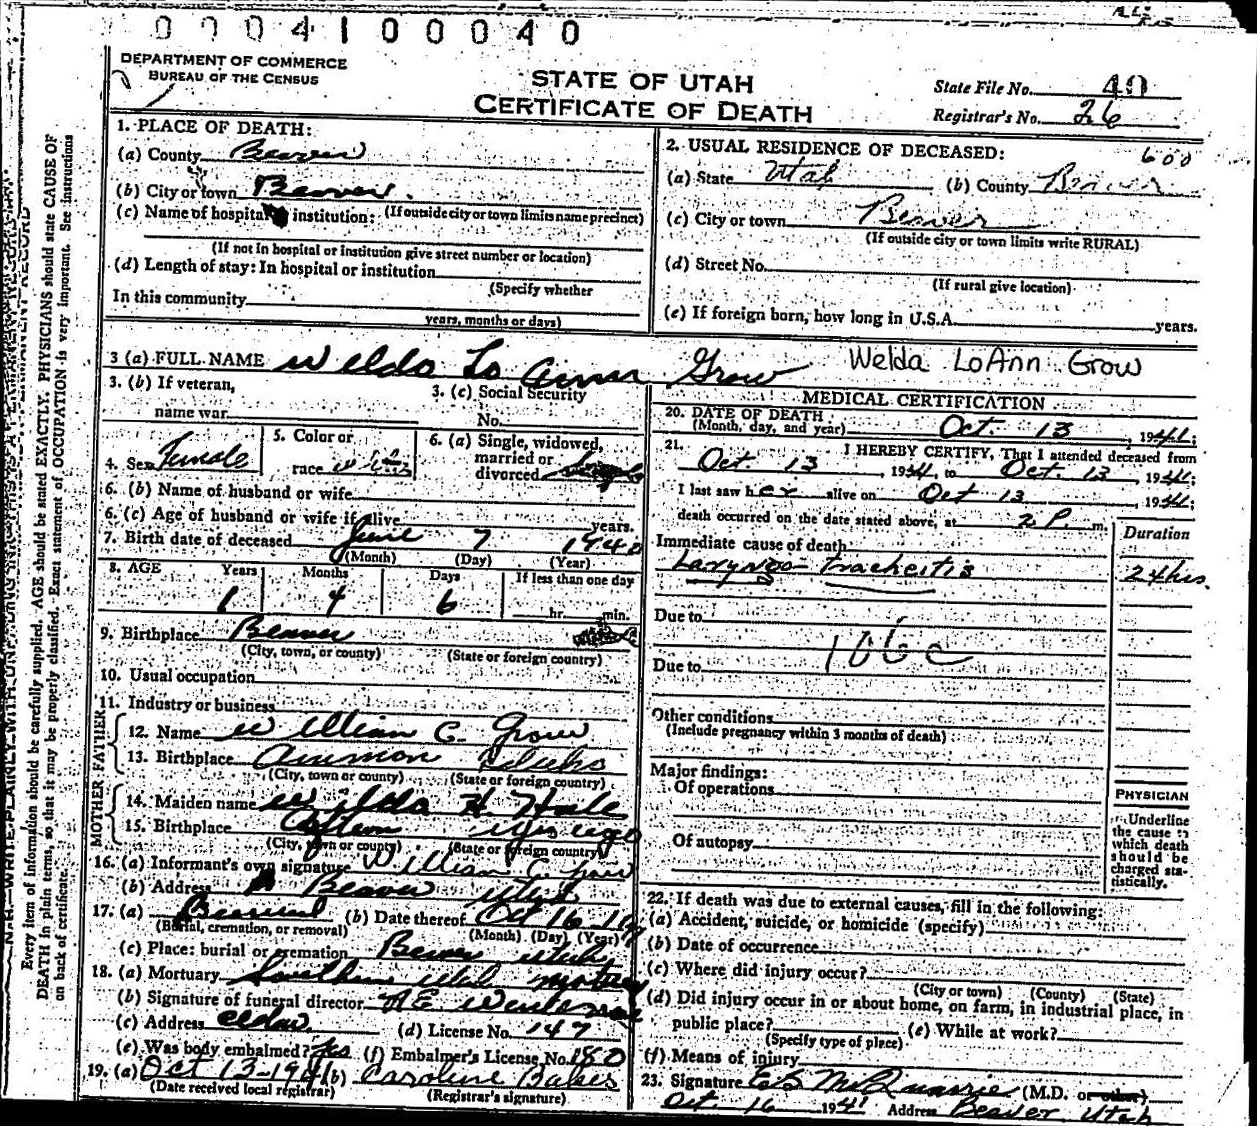 0 0 0 4 1 0 0 0 4 0
DEPARTMENT OF COMMERCE
BUREAU OF THE CENSUS
STATE OF UTAH
CERTIFICATE OF DEATH
State File No. 40
Registrar's No. 26
1. PLACE OF DEATH:
(a) County Beaver
(b) City or town Beaver.
(c) Name of hospital institution: (If outside city or town limits name precinct)
(If not in hospital or institution give street number or location)
(d) Length of stay: In hospital or institution
(Specify whether
In this community
years, months or days)
2. USUAL RESIDENCE OF DECEASED: 600
(a) State Utah (b) County Beaver
(c) City or town Beaver
(If outside city or town limits write RURAL)
(d) Street No.
(If rural give location)
(e) If foreign born, how long in U.S.A. years.
3 (a) FULL NAME Welda Lo Ann Grow Welda LoAnn Grow
3. (b) If veteran,
name war
3. (c) Social Security
No.
4. Sex Female
5. Color or
race White
6. (a) Single, widowed,
married or
divorced
6. (b) Name of husband or wife
6. (c) Age of husband or wife if alive years.
7. Birth date of deceased June 7 1940
(Month) (Day) (Year)
8. AGE Years Months Days If less than one day
1 4 6 hr. min.
9. Birthplace Beaver
(City, town, or county) (State or foreign country)
10. Usual occupation
11. Industry or business
FATHER
12. Name William C. Grow
13. Birthplace Ammon Idaho
(City, town or county) (State or foreign country)
MOTHER
14. Maiden name Wilda H. Hale
15. Birthplace Afton
(City, town or county) (State or foreign country)
16. (a) Informant's own signature William C. Grow
(b) Address Beaver Utah
17. (a) Burial (b) Date thereof Oct 16 19
(Burial, cremation, or removal) (Month) (Day) (Year)
(c) Place: burial or cremation Beaver Utah
18. (a) Mortuary Southern Utah
(b) Signature of funeral director
(c) Address Cedar (d) License No. 147
(e) Was body embalmed? Yes (f) Embalmer's License No. 180
19. (a) Oct 13-1941 (b) Caroline
(Date received local registrar) (Registrar's signature)
MEDICAL CERTIFICATION
20. DATE OF DEATH
(Month, day, and year) Oct. 13, 1941;
21. I HEREBY CERTIFY, That I attended deceased from
Oct. 13, 1941 to Oct. 13, 1941;
I last saw her alive on Oct 13 1941;
death occurred on the date stated above, at 2 P. m.
Duration
Immediate cause of death
Laryngo-Tracheitis 24 hrs.
Due to
106c
Due to
Other conditions
(Include pregnancy within 3 months of death)
Major findings:
Of operations
Of autopsy
PHYSICIAN
Underline
the cause to
which death
should be
charged sta-
tistically.
22. If death was due to external causes, fill in the following:
(a) Accident, suicide, or homicide (specify)
(b) Date of occurrence
(c) Where did injury occur?
(City or town) (County) (State)
(d) Did injury occur in or about home, on farm, in industrial place, in
public place? (e) While at work?
(Specify type of place)
(f) Means of injury
23. Signature McQuarrie (M.D. or other)
Oct. 16 1941 Address Beaver Utah
Every item of information should be carefully supplied. AGE should be stated EXACTLY. PHYSICIANS should state CAUSE OF
DEATH in plain terms, so that it may be properly classified. Exact statement of OCCUPATION is very important. See instructions
on back of certificate.